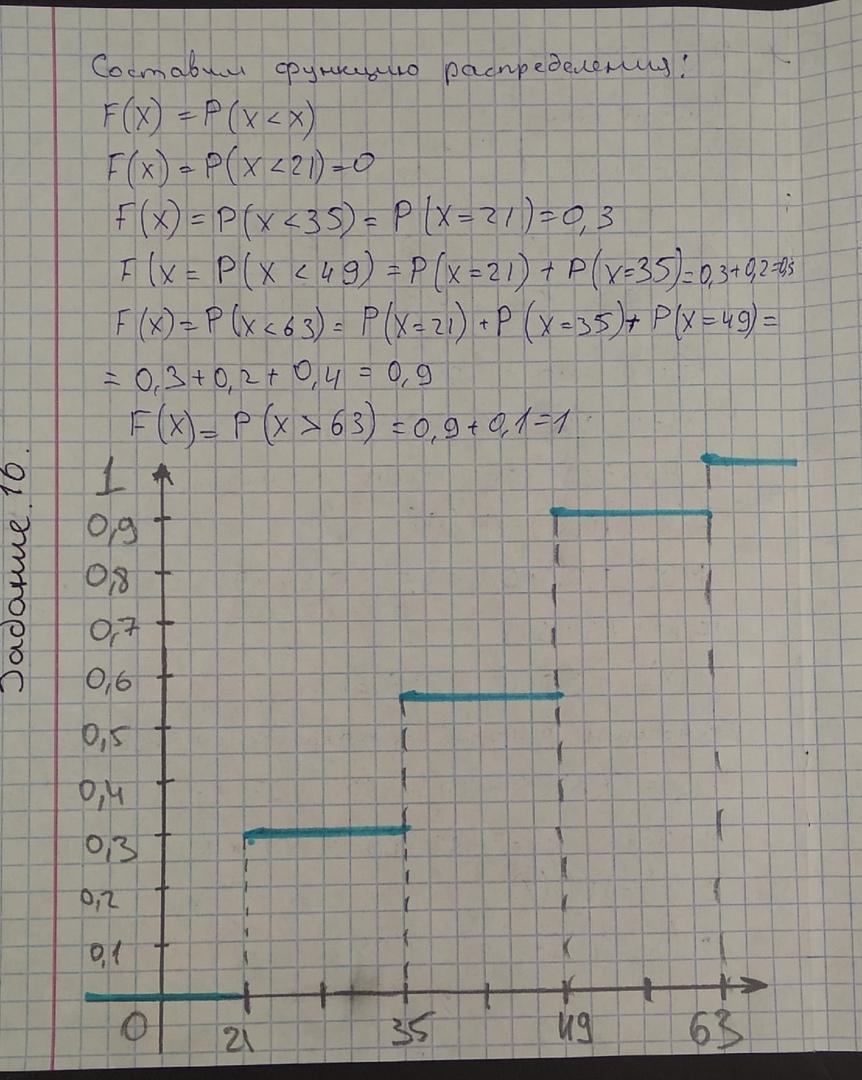 Составим функцию распределения:
F(x) = P(x < x)
F(x) = P(x < 21) = 0
F(x) = P(x < 35) = P(x = 21) = 0,3
F(x = P(x < 49) = P(x = 21) + P(x = 35) = 0,3 + 0,2 = 0,5
F(x) = P(x < 63) = P(x = 21) + P(x = 35) + P(x = 49) =
= 0,3 + 0,2 + 0,4 = 0,9
F(x) = P(x > 63) = 0,9 + 0,1 = 1
Задание 16.
1
0,9
0,8
0,7
0,6
0,5
0,4
0,3
0,2
0,1
0 21 35 49 63